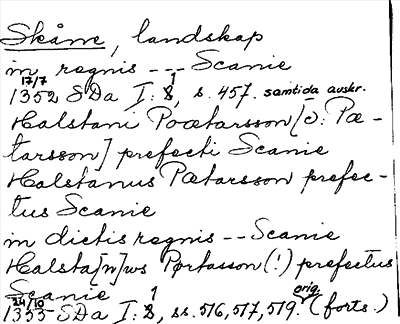 Skåne, landskap
in regnis --- Scanie
17/7 1
1352 SDa I: 8, s. 457. samtida avskr.
Halstani Poætarsson [ɔ: Pæ-
tarsson] prefecti Scanie
Halstanus Pætarsson prefec-
tus Scanie
in dictis regnis -- Scanie
Halsta[n]ws Pørtasson (!) prefectus
Scanie 1 orig.
24/10
1353 SDa I: 8, ss. 516, 517, 519. (forts.)